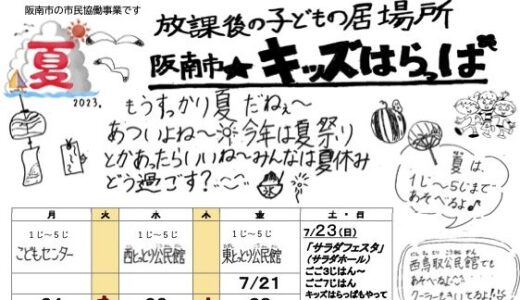 阪南市の市民協働事業です
放課後の子どもの居場所
夏
阪南市★キッズはらっぱ
2023.
もうすっかり夏だねぇ〜
あついよね〜今年は夏祭り
とかあったらいいね〜みんなは夏休み
どう過ごす?
夏は、
1じ〜5じまで
あそべるよ♪
月 火 水 木 金 土・日
1じ〜5じ
こどもセンター
1じ〜5じ
西とっとり公民館
1じ〜5じ
東とっとり公民館
7/23(日)
「サラダフェスタ」
(サラダホール)
ごご3じはん〜
ごご7じはん
キッズはらっぱもやって
7/21
西鳥取公民館でも
あそべるよ